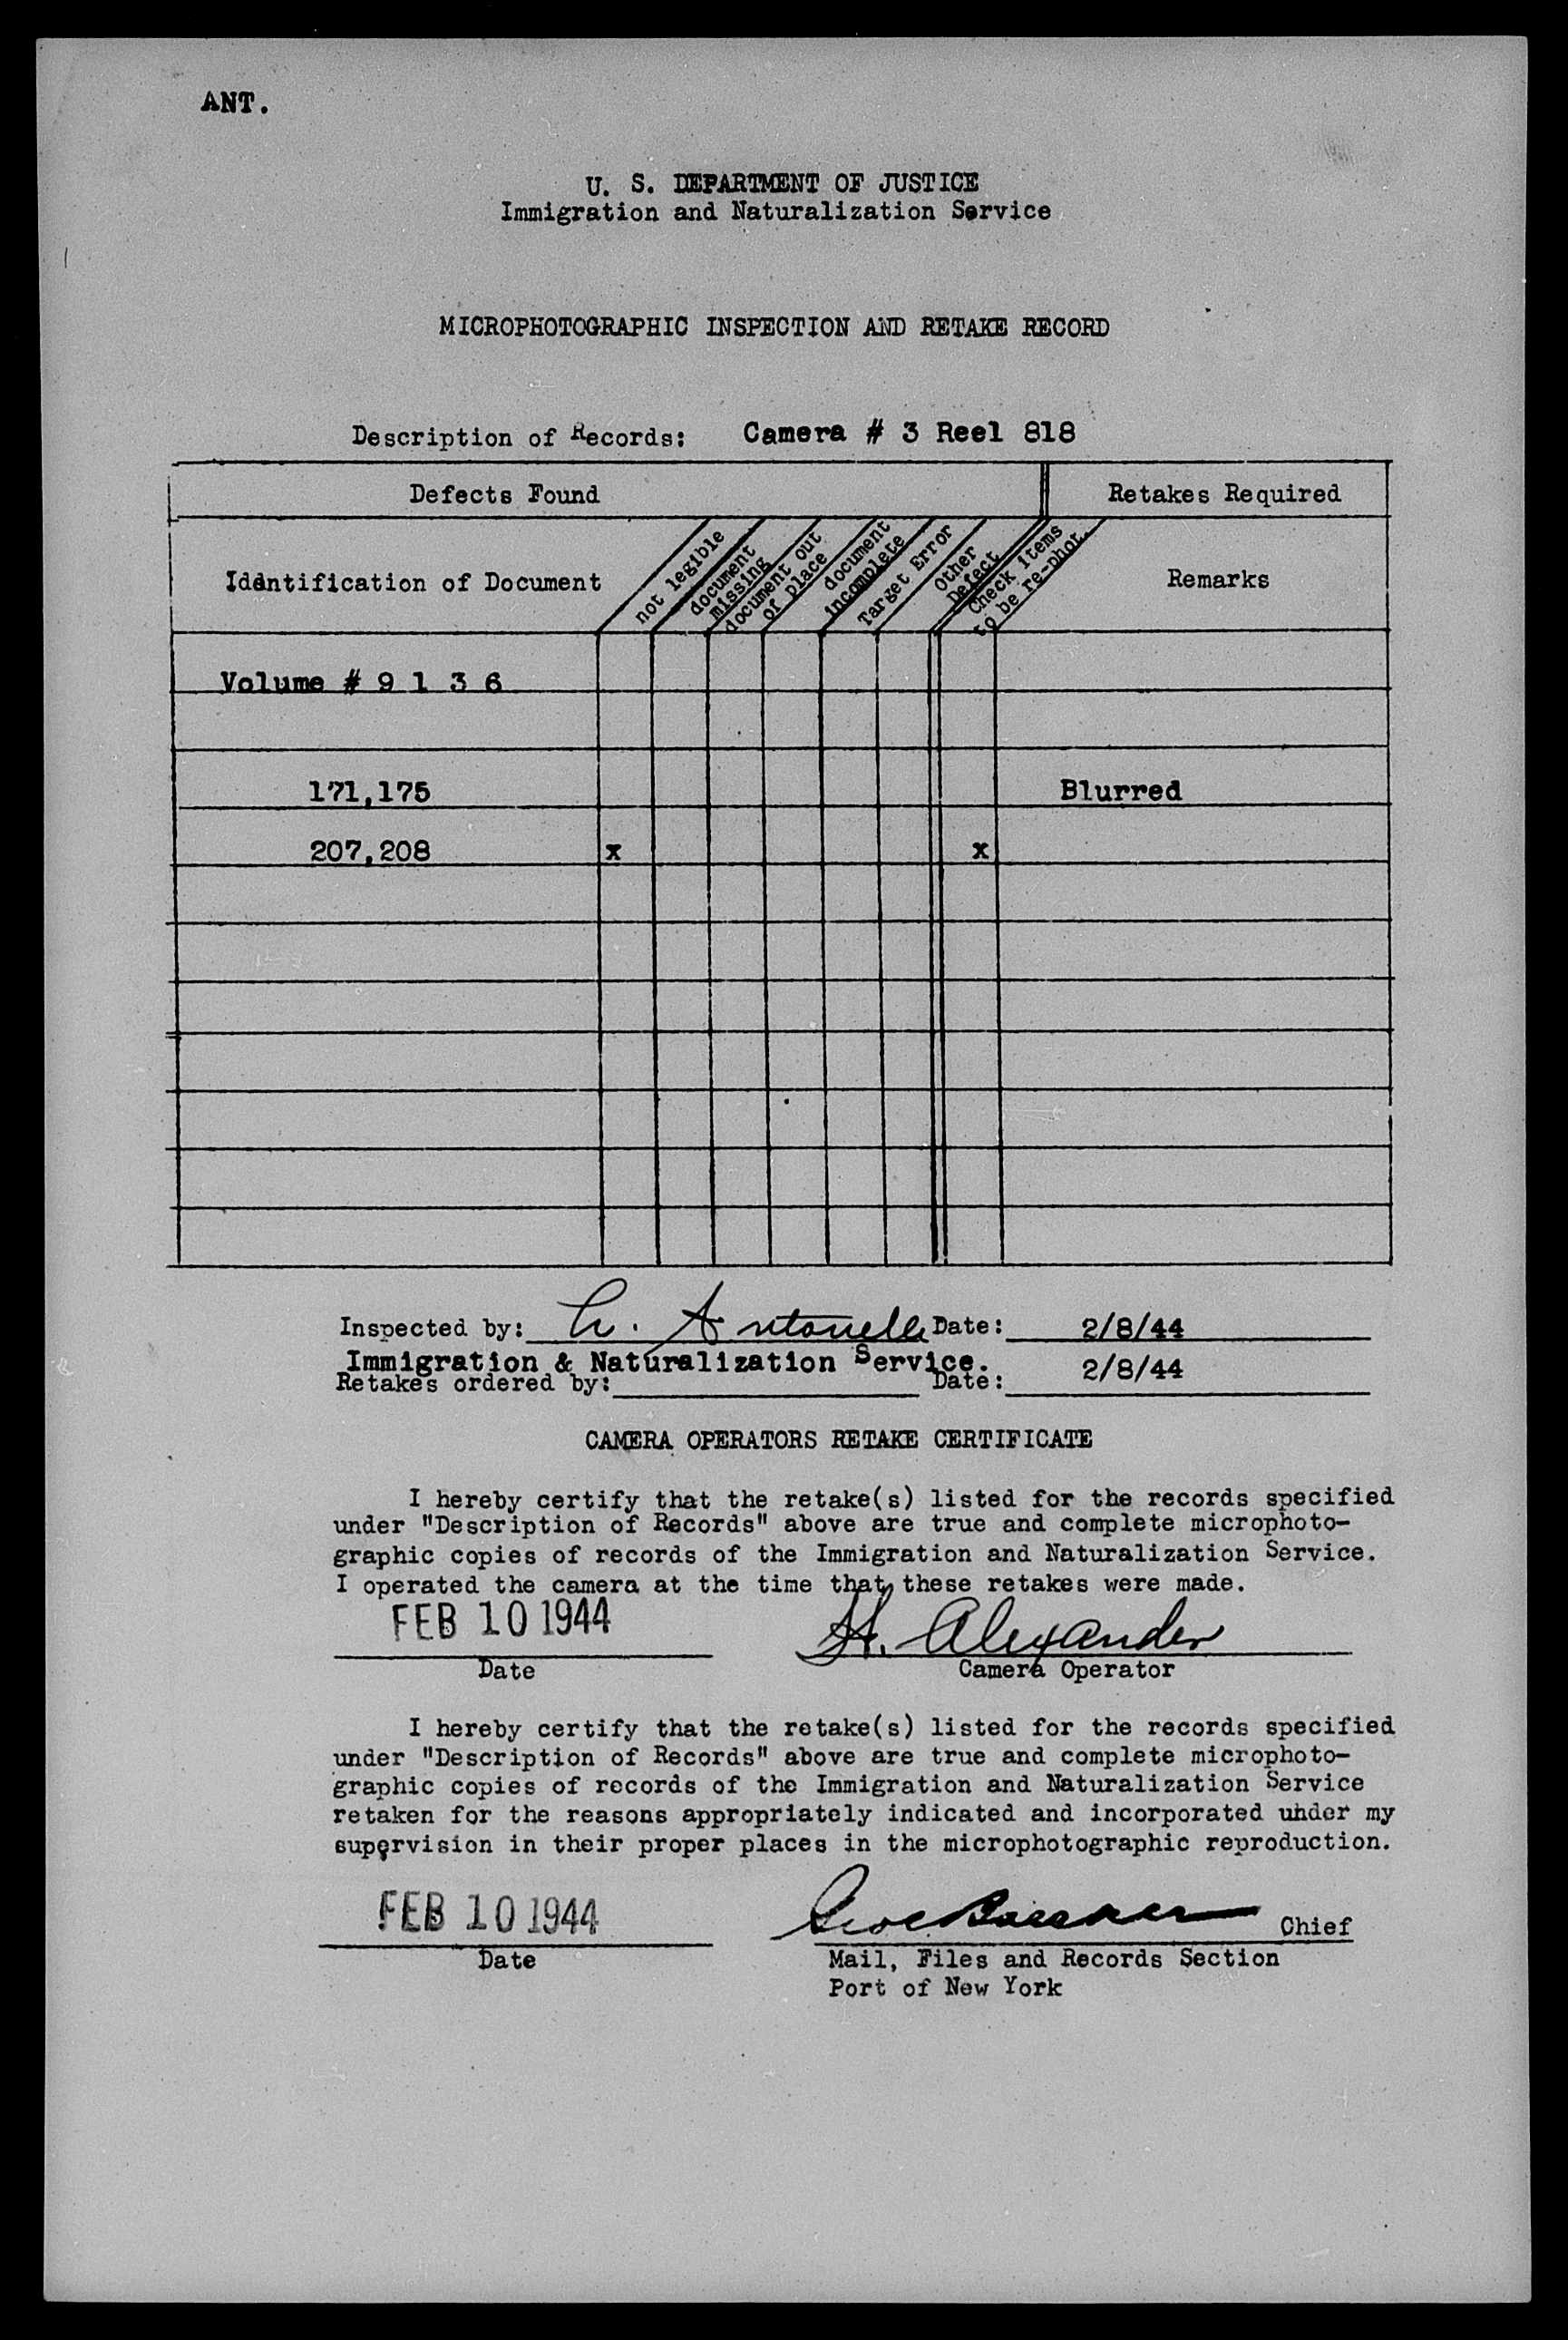 ANT.
U. S. DEPARTMENT OF JUSTICE
Immigration and Naturalization Service
MICROPHOTOGRAPHIC INSPECTION AND RETAKE RECORD
Description of Records: Camera # 3 Reel 818
Defects Found
Retakes Required
Identification of Document
not legible
document
missing
document out
of place
document
incomplete
Target Error
Other
Defect
Check items
to be re-phot.
Remarks
Volume # 9 1 3 6
171,175 Blurred
207,208 x x
Inspected by: Antonelli Date: 2/8/44
Immigration & Naturalization Service. 2/8/44
Retakes ordered by: Date:
CAMERA OPERATORS RETAKE CERTIFICATE
I hereby certify that the retake(s) listed for the records specified
under "Description of Records" above are true and complete microphoto-
graphic copies of records of the Immigration and Naturalization Service.
I operated the camera at the time that these retakes were made.
FEB 10 1944 H. Alexander
Date Camera Operator
I hereby certify that the retake(s) listed for the records specified
under "Description of Records" above are true and complete microphoto-
graphic copies of records of the Immigration and Naturalization Service
retaken for the reasons appropriately indicated and incorporated under my
supervision in their proper places in the microphotographic reproduction.
FEB 10 1944 Chief
Date Mail, Files and Records Section
Port of New York